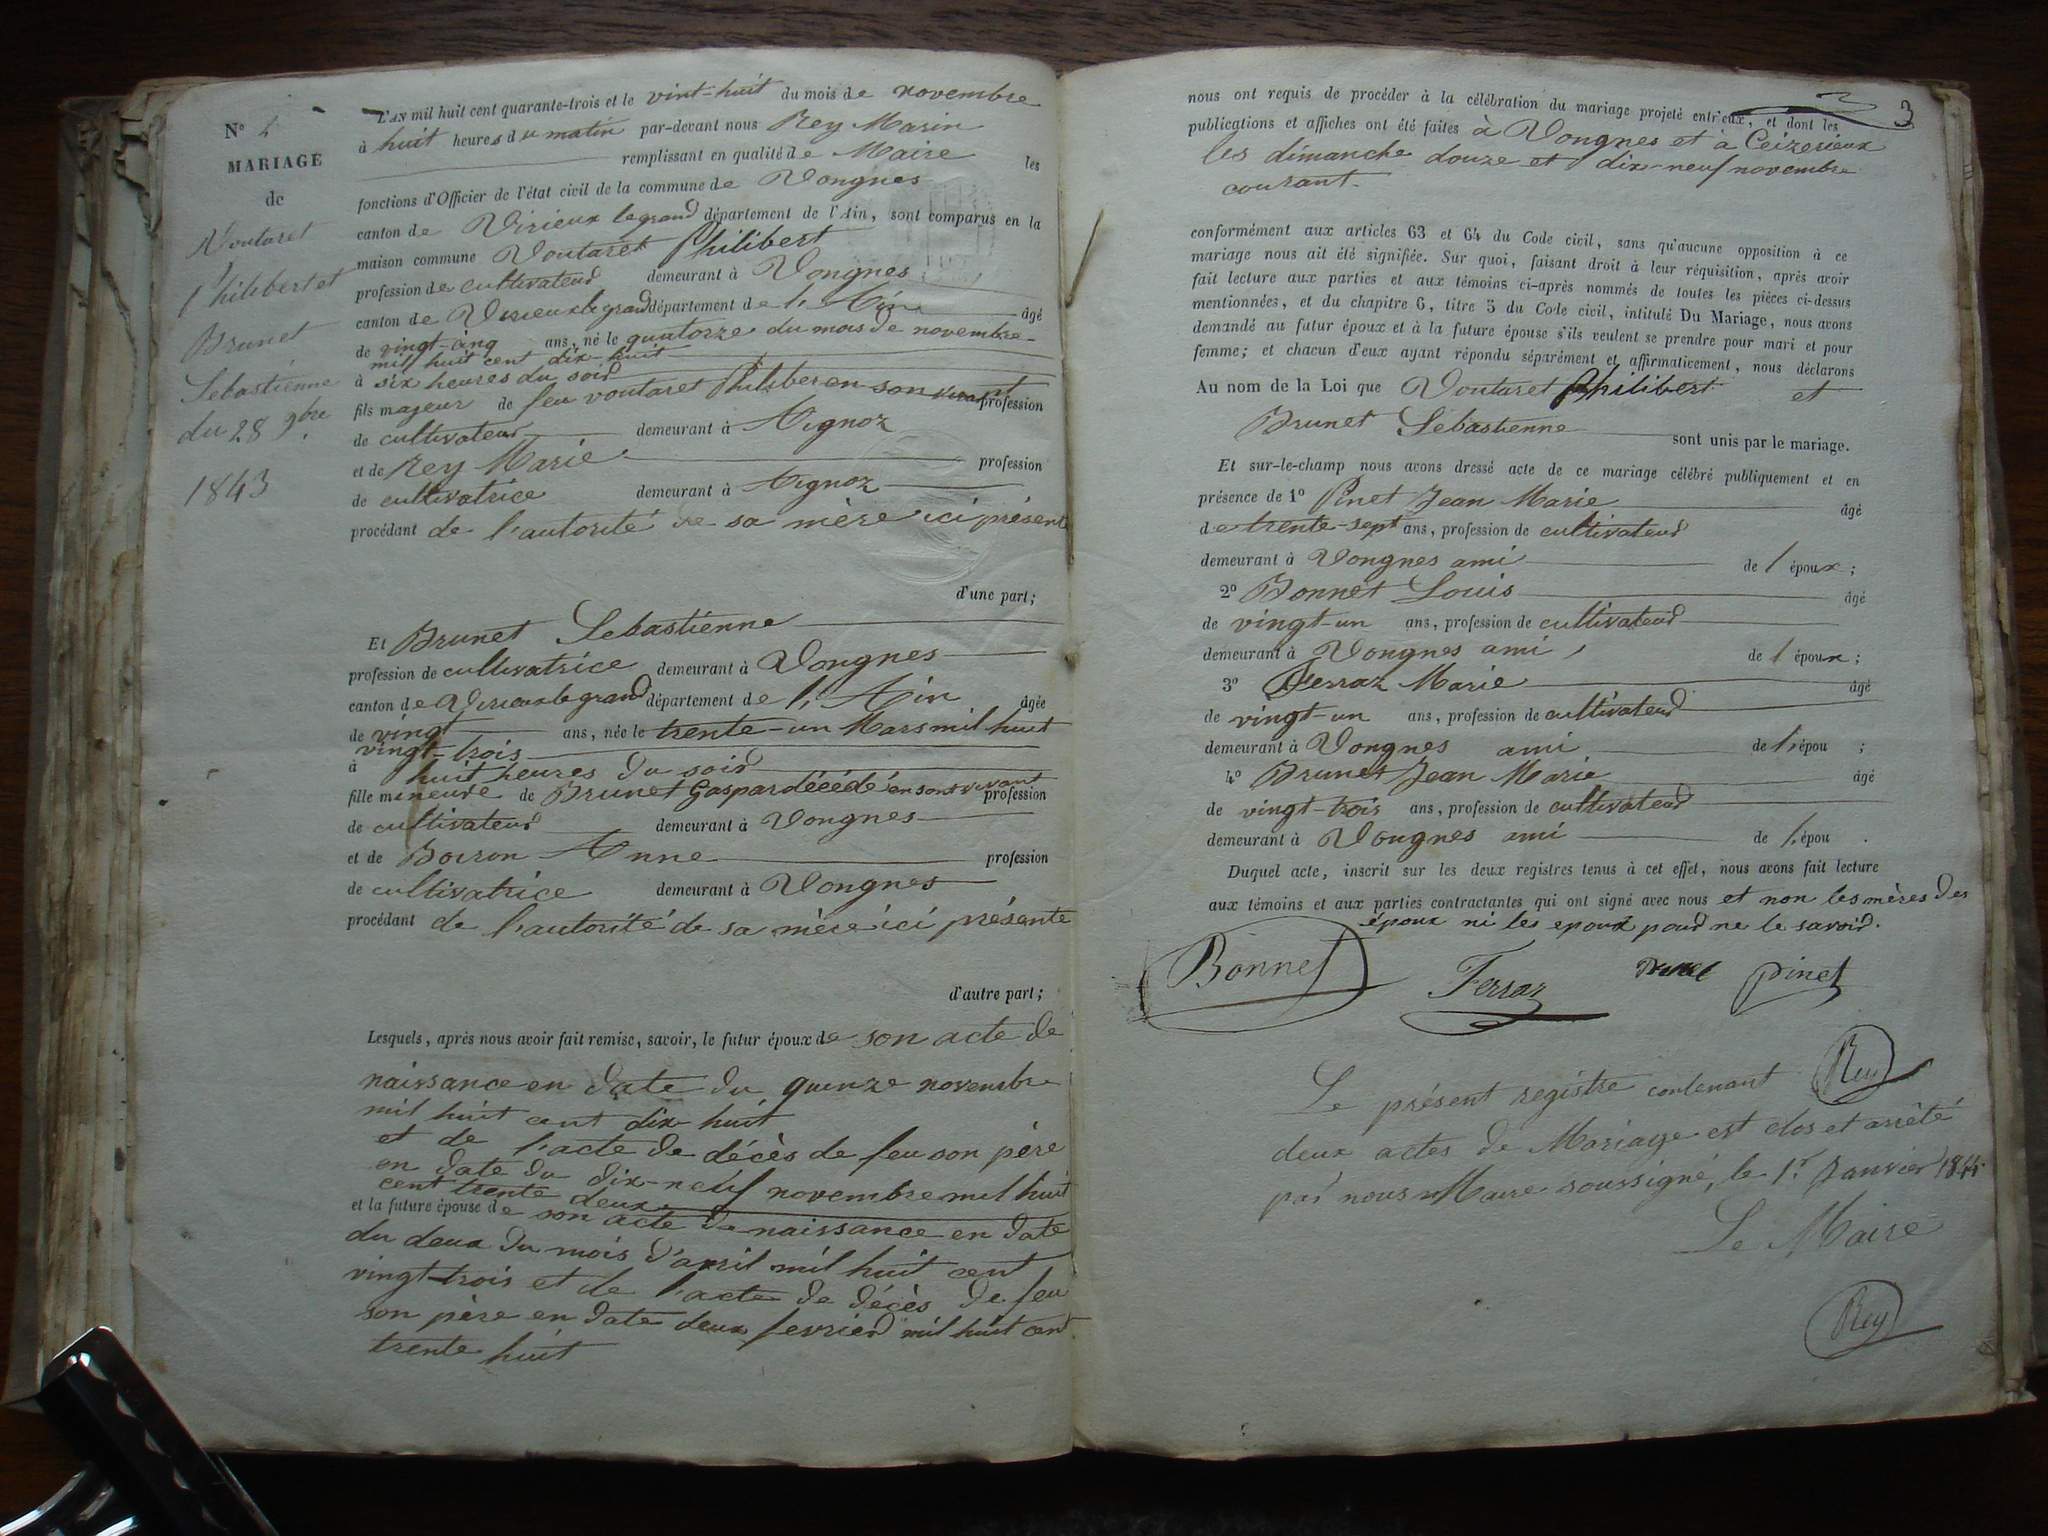 N° 2
MARIAGE
de
Voutaret
Philibert et
Brunet
Sebastienne
du 28 9bre
1843
L'AN mil huit cent quarante-trois et le vint-huit du mois de novembre
à huit heures du matin par-devant nous Rey Marin
remplissant en qualité de Maire les
fonctions d'Officier de l'état civil de la commune de Vongnes
canton de Virieux le grand département de l'Ain, sont comparus en la
maison commune Voutaret Philibert
profession de cultivateur demeurant à Vongnes
canton de Virieux le grand département de l'Ain âgé
de vingt-cinq ans, né le quatorze du mois de novembre
mil huit cent dix-huit
à six heures du soir
fils majeur de feu voutaret Philiber en son vivant profession
de cultivateur demeurant à Aignoz
et de Rey Marie profession
de cultivatrice demeurant à Aignoz
procédant de l'autorité de sa mère ici présente
d'une part;
Et Brunet Sebastienne
profession de cultivatrice demeurant à Vongnes
canton de Virieux le grand département de l'Ain âgée
de vingt ans, née le trente-un Mars mil huit
vingt-trois
à huit heures du soir
fille mineure de Brunet Gaspar décédé en son vivant profession
de cultivateur demeurant à Vongnes
et de Boiron Anne profession
de cultivatrice demeurant à Vongnes
procédant de l'autorité de sa mère ici présente
d'autre part;
Lesquels, après nous avoir fait remise, savoir, le futur époux de son acte de
naissance en date du quinze novembre
mil huit cent dix-huit
et de l'acte de décès de feu son père
en date du dix-neuf novembre mil huit
cent trente deux
et la future épouse de son acte de naissance en date
du deux du mois d'avril mil huit cent
vingt-trois et de l'acte de décès de feu
son père en date deux fevrier mil huit cent
trente huit
3
nous ont requis de procéder à la célébration du mariage projeté entr'eux, et dont les
publications et affiches ont été faites à Vongnes et à Ceizerieux
les dimanche douze et dix-neuf novembre
courant.
conformément aux articles 63 et 64 du Code civil, sans qu'aucune opposition à ce
mariage nous ait été signifiée. Sur quoi, faisant droit à leur réquisition, après avoir
fait lecture aux parties et aux témoins ci-après nommés de toutes les pièces ci-dessus
mentionnées, et du chapitre 6, titre 5 du Code civil, intitulé Du Mariage, nous avons
demandé au futur époux et à la future épouse s'ils veulent se prendre pour mari et pour
femme; et chacun d'eux ayant répondu séparément et affirmativement, nous déclarons
Au nom de la Loi que Voutaret Philibert et
Brunet Sebastienne sont unis par le mariage.
Et sur-le-champ nous avons dressé acte de ce mariage célébré publiquement et en
présence de 1° Pinet Jean Marie âgé
de trente-sept ans, profession de cultivateur
demeurant à Vongnes ami de l'époux;
2° Bonnet Louis âgé
de vingt-un ans, profession de cultivateur
demeurant à Vongnes ami de l'époux;
3° Ferraz Marie âgé
de vingt-un ans, profession de cultivateur
demeurant à Vongnes ami de l'épou ;
4° Brunet Jean Marie âgé
de vingt-trois ans, profession de cultivateur
demeurant à Vongnes ami de l'épou .
Duquel acte, inscrit sur les deux registres tenus à cet effet, nous avons fait lecture
aux témoins et aux parties contractantes qui ont signé avec nous et non les mères des
époux ni les epoux pour ne le savoir.
Bonnet Ferraz Brunet pinet
Rey
Le présent registre contenant
deux actes de Mariage est clos et arrêté
par nous Maire soussigné, le 1r. Janvier 1844
Le Maire
Rey